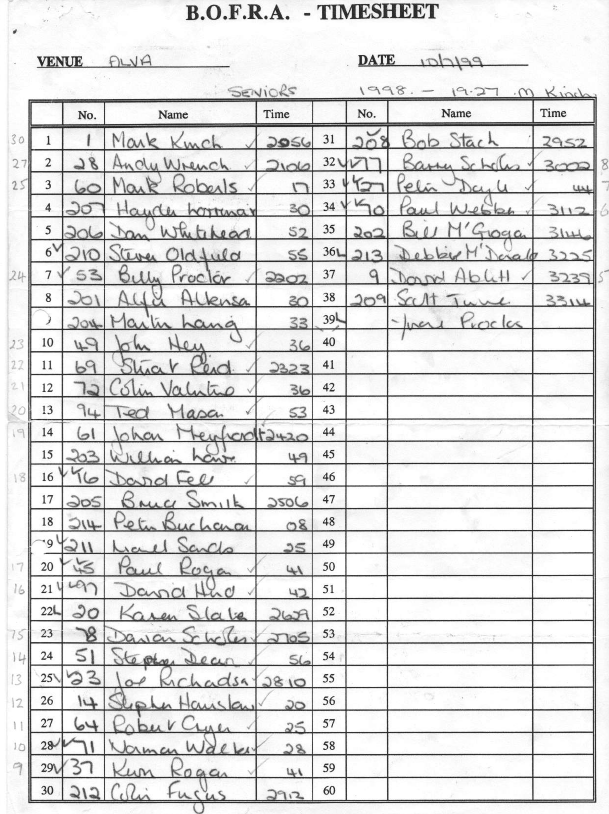 B.O.F.R.A. - TIMESHEET
VENUE ALVA DATE 10/7/99
SENIORS 1998. - 19.27 M Kinch
No. Name Time No. Name Time
30 1 1 Mark Kinch 2056 31 208 Bob Stach 2952
27 2 28 Andy Wrench 2106 32 77 Barry Scholes 3002 8
25 3 60 Mark Roberts 17 33 127 44 7
4 207 Hayden 30 34 70 Paul Webber 3112 6
5 206 Dan Whitehead 52 35 202 Bill M'Grogan 3146
6 210 Steven Oldfield 55 36L 213 Debbie M'Donald 3225
24 7 53 Billy Proctor 2202 37 9 David Ablitt 3239 5
8 201 30 38 209 Scott 3314
204 Martin Laing 33 39L Proctor
23 10 49 John Hey 36 40
22 11 69 Stuart Reid 2323 41
21 12 72 Colin Valentine 36 42
20 13 94 Ted Mason 53 43
19 14 61 Johan 2420 44
15 203 William 49 45
18 16 76 David Fell 59 46
17 205 Bruce Smith 2506 47
18 214 Peter Buchanan 08 48
9 211 Sands 25 49
17 20 45 Paul Rogan 41 50
16 21 97 David Hird 42 51
22L 20 Karen Slater 2629 52
15 23 78 Darian Scholes 2705 53
14 24 51 Stephen Dean 56 54
13 25 23 Joe Richardson 2810 55
12 26 14 Stephen 20 56
11 27 64 Robert Cryer 25 57
10 28 71 Norman Walker 28 58
9 29 37 Rogan 41 59
30 212 Colin 2912 60